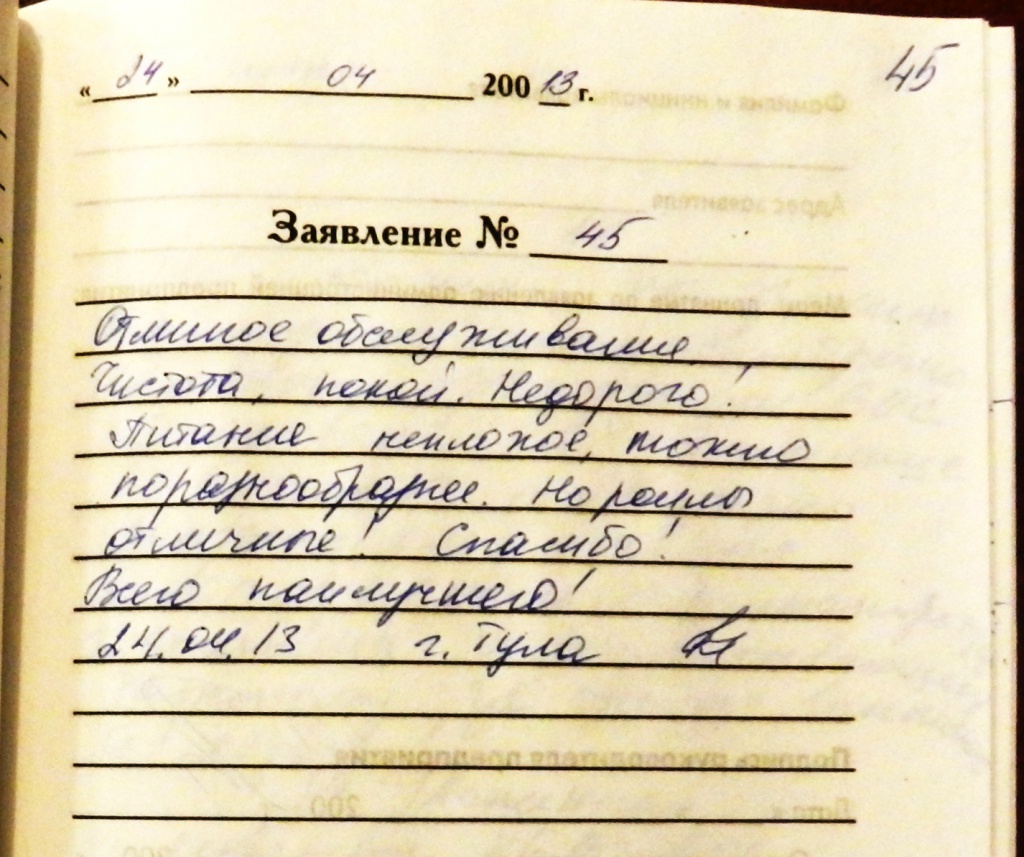 « 24 » 04 200 13 г.
45
Заявление № 45
Отличное обслуживание
Чистота, покой. Недорого!
Питание неплохое, можно
поразнообразнее. Но
отличные! Спасибо!
Всего наилучшего!
24.04.13 г. Тула